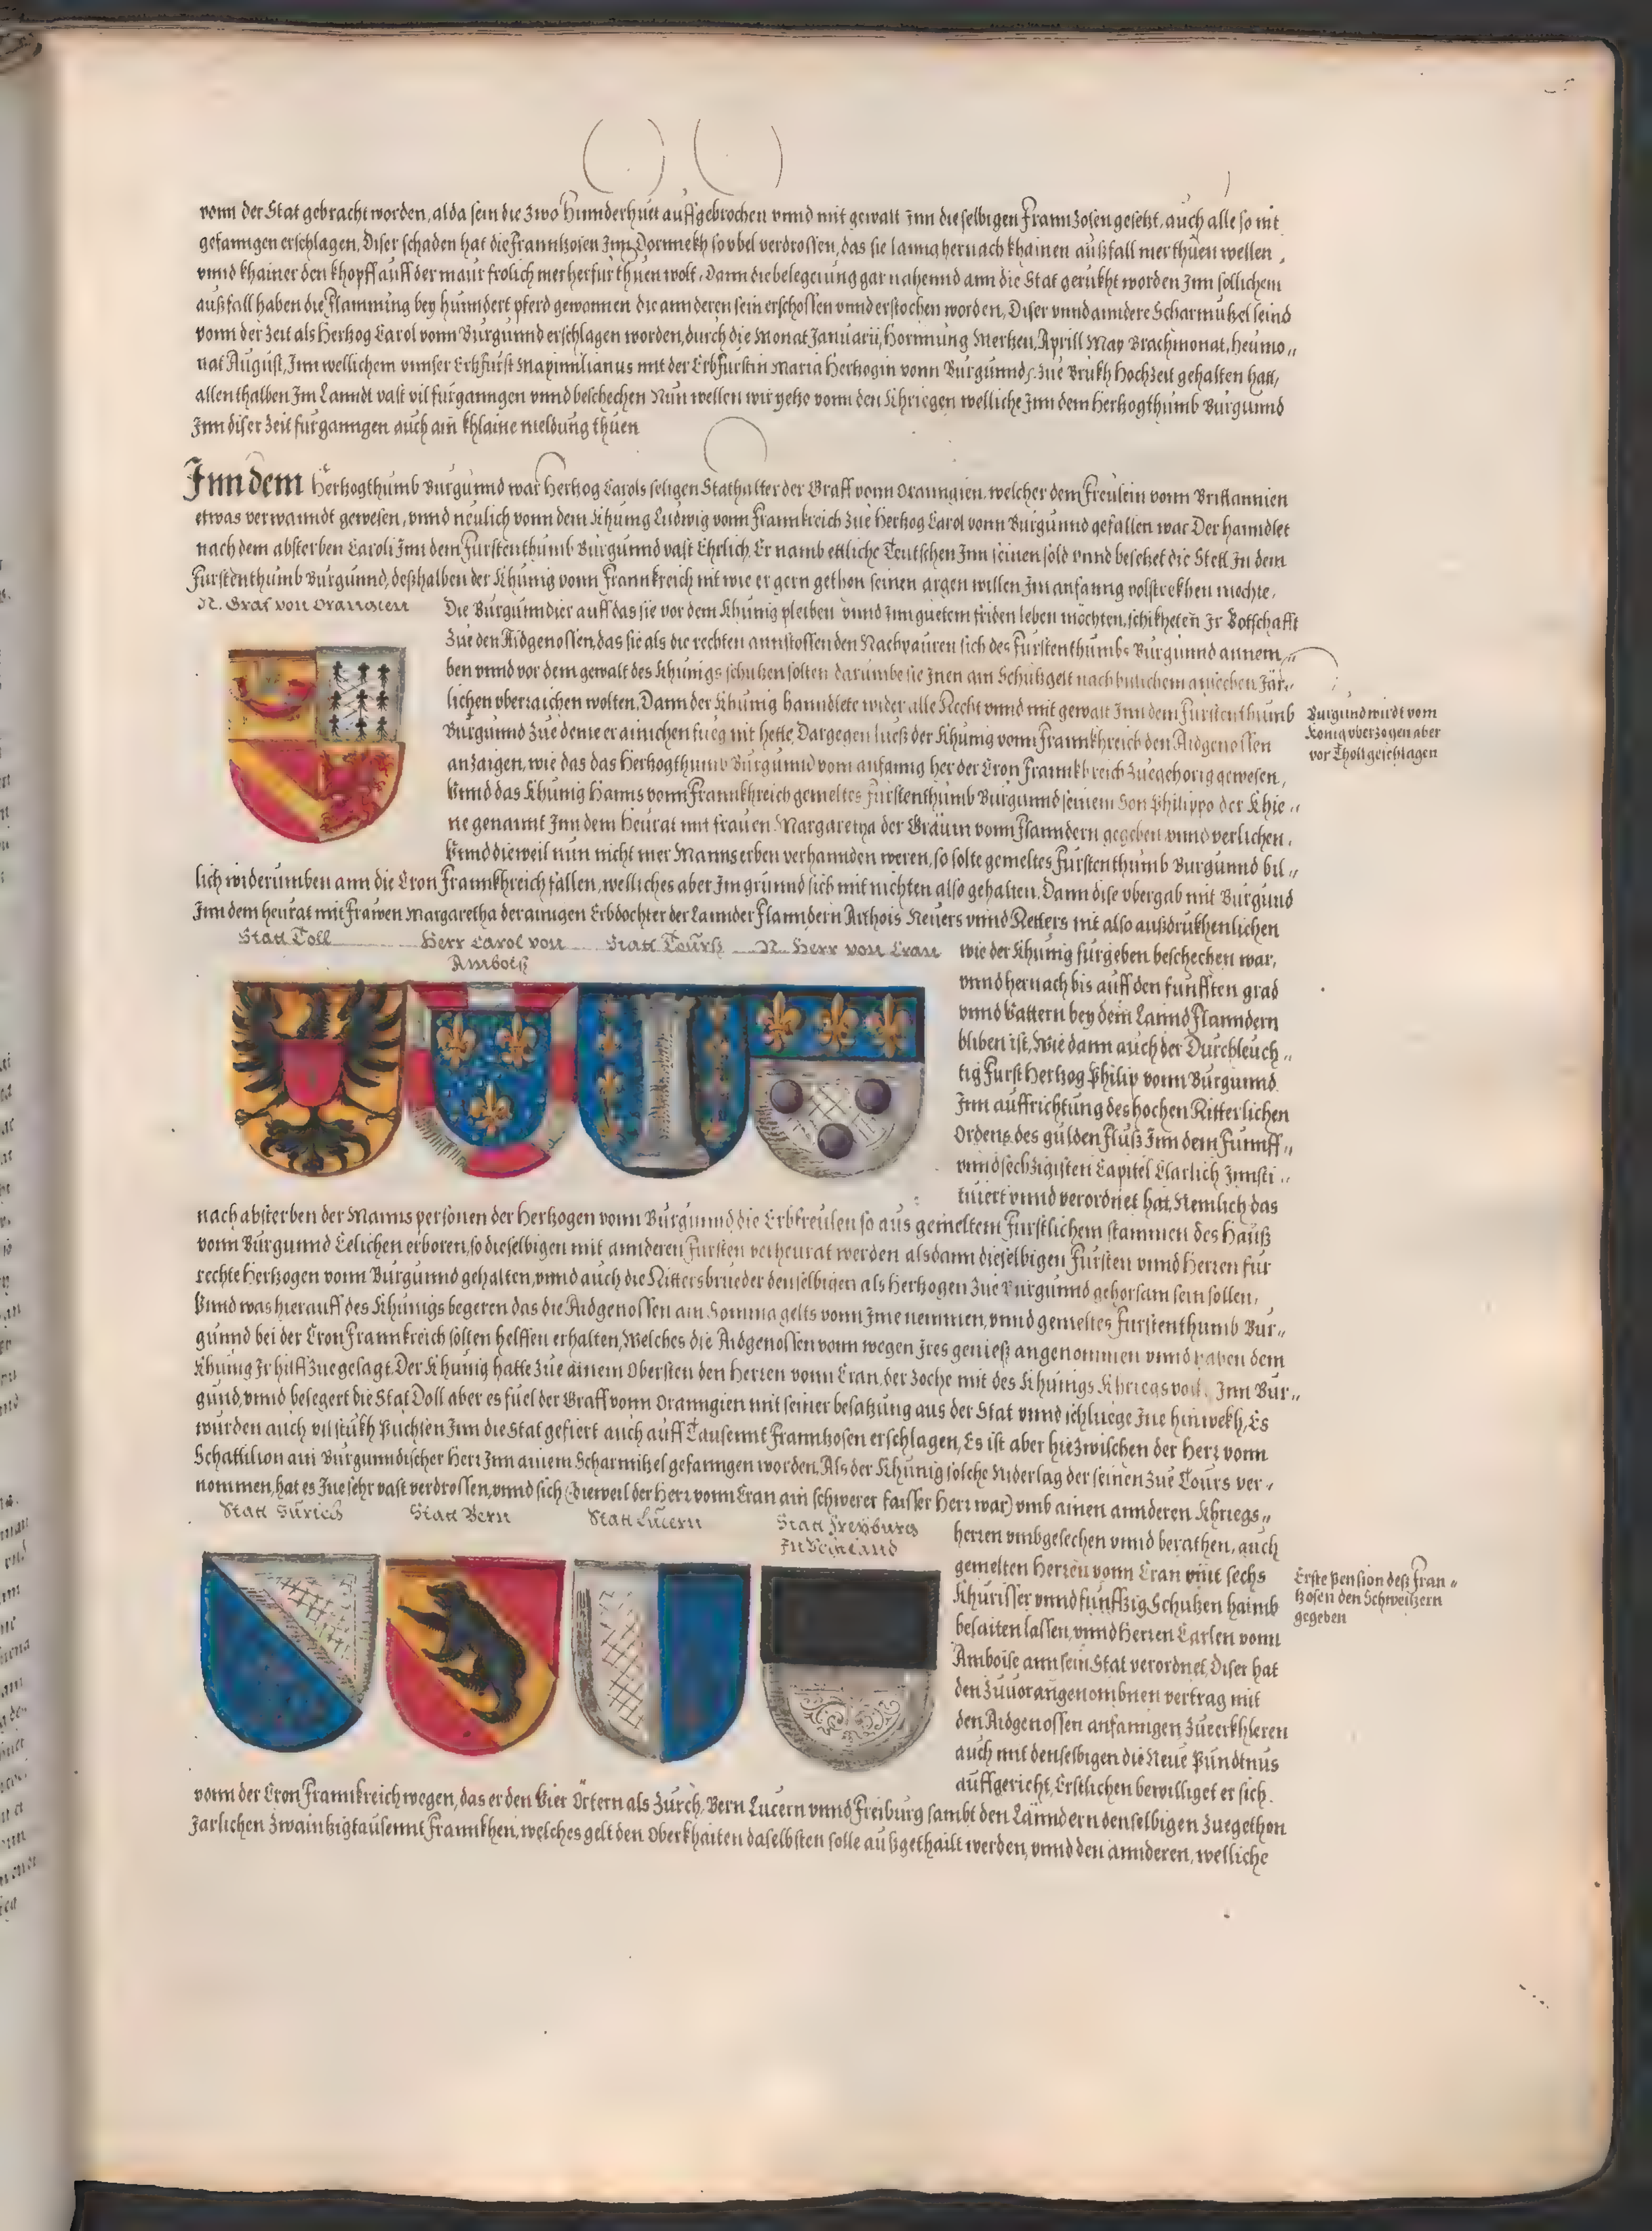 vonn der Stat gebracht worden, alda sein die zwo Hunderhuet auffgebrochen vnnd mit gewalt Inn die selbigen Frannzosen gesetzt, auch alle so nit
gefanngen erschlagen, Diser schaden hat die Frannkosen Inn Dornnekh so vbel verdrossen, das sie lanng hernach khainen außfall mer thuen wellen,
vnnd khainer den khopff auff der maur frolich mer herfur thuen wolt, Dann die belegerung gar nahennd ann die Stat gerukht worden Inn sollichem
außfall haben die Flamming bey hundert pferd gewonnen die annderen sein erschossen vnnd erstochen worden, Diser vnnd anndere Scharmutzel seind
vonn der Zeit als Hertzog Carol vonn Burgunnd erschlagen worden, durch die Monat Januarii, Hornnung Mertzen, Aprill May Brachmonat, Heumo„
nat August, Inn wellichem vnnser Erbfurst Maximilianus mit der Erbfurstin Maria Hertzogin vonn Burgunnd, zue Brukh Hochzeit gehalten hatt,
allenthalben Im Lanndt vast vil furganngen vnnd beschechen Nun wellen wir yetzo vonn den Khriegen welliche Inn dem Hertzogthumb Burgunnd
Inn diser Zeit furganngen auch ain khlaine meldung thuen
Inn dem Hertzogthumb Burgunnd war Hertzog Carols seligen Stathalter der Graff vonn Oranngien, welcher dem Freulein vonn Brittannien
etwas verwanndt gewesen, vnnd neulich vonn dem Khunig Ludwig vonn Frannkreich zue Hertzog Carol vonn Burgunnd gefallen war Der hanndlet
nach dem absterben Caroli Inn dem Furstenthumb Burgunnd vast Ehrlich, Er namb ettliche Teutschen Inn seinen sold vnnd besetzet die Stett In dem
Furstenthumb Burgunnd, deßhalben der Khunig vonn Frannkreich nit wie er gern gethon seinen argen willen Im anfanng volstrekhen mochte,
N. Graf von Orangien
Die Burgunndier auff das sie vor dem Khunig pleiben vnnd Inn guetem friden leben mochten, schikheten Ir Botschafft
zue den Aidgenossen, das sie als die rechten annstossenden Nachpauren sich des Furstenthumbs Burgunnd annem„
ben vnnd vor dem gewalt des Khunigs schutzen solten darumbe sie Inen ain Schutzgelt nach pillichem ansechen Jär„
lichen vberraichen wolten, Dann der Khunig hanndlete wider alle Recht vnnd mit gewalt Inn dem Furstenthumb
Burgunnd zue deme er ainichen fueg nit hette, Dargegen liesß der Khunig vonn Frannkhreich den Aidgenossen
anzaigen, wie das das Hertzogthumb Burgunnd vom anfanng her der Cron Frannkhreich zuegehorig gewesen,
Vnnd das Khunig Hanns vonn Frannkhreich gemeltes Furstenthumb Burgunnd seinem Son Philippo der Khie„
ne genannt Inn dem Heurat mit frauen Margaretha der Gräuin vonn Flanndern gegeben vnnd verlichen,
Vnnd dieweil nun nicht mer Manns erben verhannden weren, so solte gemeltes Furstenthumb Burgunnd bil„
lich widerumben ann die Cron Frannkhreich fallen, welliches aber Im grunnd sich mit nichten also gehalten, Dann dise vbergab mit Burgund
Inn dem heurat mit Frawen Margaretha der ainigen Erbdochter der Lannder Flanndern Arthois Neuers vnnd Retters nit also außdrukhenlichen
Burgund wirdt vom
König vberzogen aber
vor Tholl geschlagen
Statt Toll
Herr Carol von
Amboiß
Statt Tourß
N. Herr von Cran
wie der Khunig furgeben beschechen war,
vnnd hernach bis auff den funfften grad
vnnd Vattern bey dem Lannd Flanndern
bliben ist, Wie dann auch der Durchleuch„
tig Furst Hertzog Philip vonn Burgunnd
Inn auffrichtung des hochen Ritterlichen
Ordens des gulden Fluß Inn dem Funnff„
vnnd sechzigisten Capitel Clarlich Innsti„
tuiert vnnd verordnet hat, Nemlich das
nach absterben der Manns personen der Hertzogen vonn Burgunnd die Erbfreulen so aus gemeltem Furstlichem stammen des Hauß
vonn Burgunnd Eelichen erboren, so dieselbigen mit annderen Fursten verheurat werden alsdann dieselbigen Fursten vnnd Herren fur
rechte Hertzogen vonn Burgunnd gehalten, vnnd auch die Rittersbrueder denselbigen als Hertzogen zue Burgunnd gehorsam sein sollen,
Vnnd was hierauff des Khunigs begeren das die Aidgenossen ain Somma gelts vonn Ime nemmen, vnnd gemeltes Furstenthumb Bur„
gunnd bei der Cron Frannkreich solten helffen erhalten, Welches die Aidgenossen vonn wegen Ires genieß angenommen vnnd haben dem
Khunig Ir hilff zuegesagt, Der Khunig hatte zue ainem Obersten den Herren vonn Cran, der zoche mit des Khunigs Khriegsvolk Inn Bur„
gund, vnnd belegert die Stat Doll aber es fuel der Graff vonn Oranngien mit seiner besatzung aus der Stat vnnd schluege Ine hinwekh, Es
wurden auch vil stukh Puchsen Inn die Stat gefiert auch auff Tausennt Frannkosen erschlagen, Es ist aber hiezwischen der Herr vonn
Schattilion ain Burgunndischer Herr Inn ainem Scharmitzel gefanngen worden, Als der Khunig solche Niderlag der seinen zue Tours ver„
nommen, hat es Ine sehr vast verdrossen, vnnd sich (Dieweil der Herr vonn Cran ain schwerer faisser Herr war) vmb ainen annderen Khriegs„
Statt Zürich
Statt Bern
Statt Lucern
Statt Freyburg
herren vmbgesechen vnnd berathen, auch
gemelten Herren vonn Cran mit sechs
Khurisser vnnd funffzig Schutzen haimb
belaiten lassen, vnnd Herren Carlen vonn
Amboise ann sein Stat verordnet, Diser hat
den zuuor angenombnen vertrag mit
den Aidgenossen anfanngen zuerkhleren
auch mit denselbigen die Neue Pundtnus
auffgericht, Erstlichen bewilliget er sich
Erste Pension deß Fran„
tzosen den Schweitzern
gegeben
vonn der Cron Frannkreich wegen, das er den Vier Örtern als Zurch, Bern Lucern vnnd Freiburg sambt den Lanndern denselbigen zuegethon
Jarlichen Zwaintzigtausennt Frannkhen, welches gelt den Oberkhaiten daselbsten solle außgethailt werden, vnnd den annderen, welliche